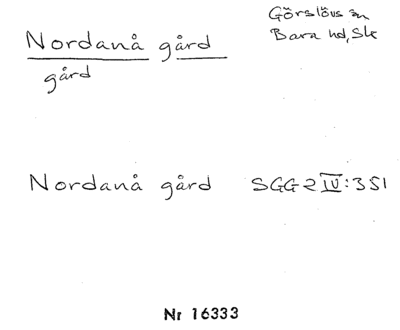 Nordanå gård
gård
Görslövs sn
Bara hd, Sk
Nordanå gård SGG 2 IV:351
Nr 16333